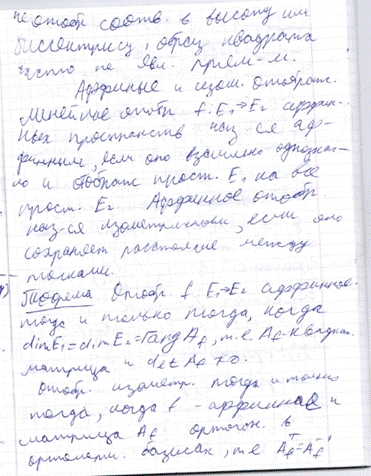 не отобр соотв. в высоту или
биссектрису, образ квадрата
часто не явл.
Аффинные и изом. отображ.
Линейное отобр f: E₁→E₂ аффин-
ных пространств наз-ся аф-
финным, если оно взаимно однознач-
но и отображ прост. E₁ на всё
прост. E₂ Аффинное отобр
наз-ся изометричным, если оно
сохраняет расстояние между
точками.
Теорема Отобр. f: E₁→E₂ аффинное
тогда и только тогда, когда
dimE₁=dimE₂=rang A_f, т.е. A_f - квадрат.
матрица и det A_f ≠ 0.
Отобр. изометр. тогда и только
тогда, когда f - аффинное и
матрица A_f ортогон. в
ортонорм. базисах, т.е. A_f^T=A_f^-1